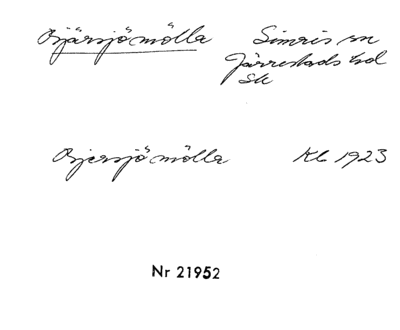 Bjärsjö mölla Simris sn
Järrestads hd
Sk
Bjersjö mölla Kb 1923
Nr 21952